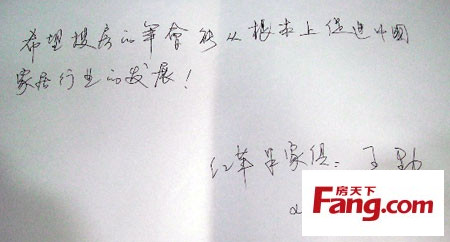 希望搜房的年会能从根本上促进中国
家居行业的发展！
红苹果家俱：王
房天下
Fang.com